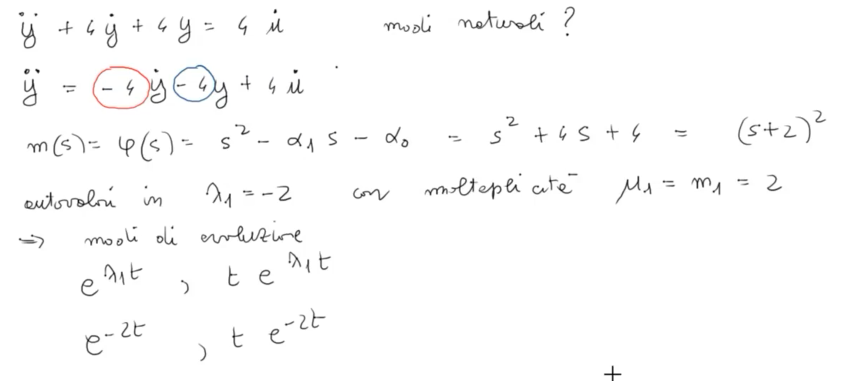 ÿ + 4ẏ + 4y = 4 u̇ modi naturali ?
ÿ = -4 ẏ -4y + 4 u̇
m(s) = φ(s) = s² - α₁ s - α₀ = s² + 4s + 4 = (s+2)²
autovalori in λ₁ = -2 con molteplicità μ₁ = m₁ = 2
⇒ modi di evoluzione
e^{λ₁t} , t e^{λ₁t}
e^{-2t} , t e^{-2t}